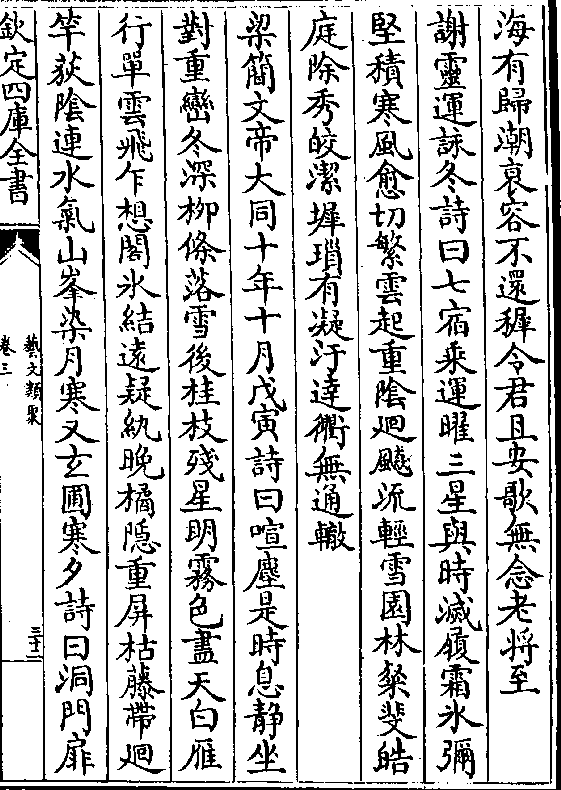 海有歸潮衰容不還穉令君且安歌無念老将至
謝靈運詠冬詩曰七宿乘運曜三星與時滅履霜氷彌
堅積寒風愈切繁雲起重陰廻飈流輕雪園林粲斐皓
庭除秀皎潔墀瑣有凝汙逹衢無通轍
梁簡文帝大同十年十月戊寅詩曰喧塵是時息静坐
對重巒冬深栁條落雪後桂枝殘星明霧色盡天白雁
行單雲飛乍想閣氷結遠疑紈晩橘隠重屏枯藤帶廻
竿荻陰連水氣山峯染月寒又玄圃寒夕詩曰洞門扉
欽定四庫全書
藝文類聚
卷三
三十二